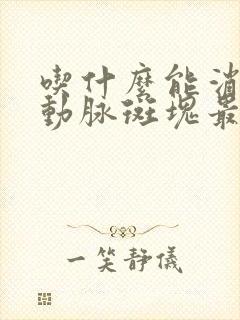 喫什麽能消
動脈斑塊最
一笑靜儀